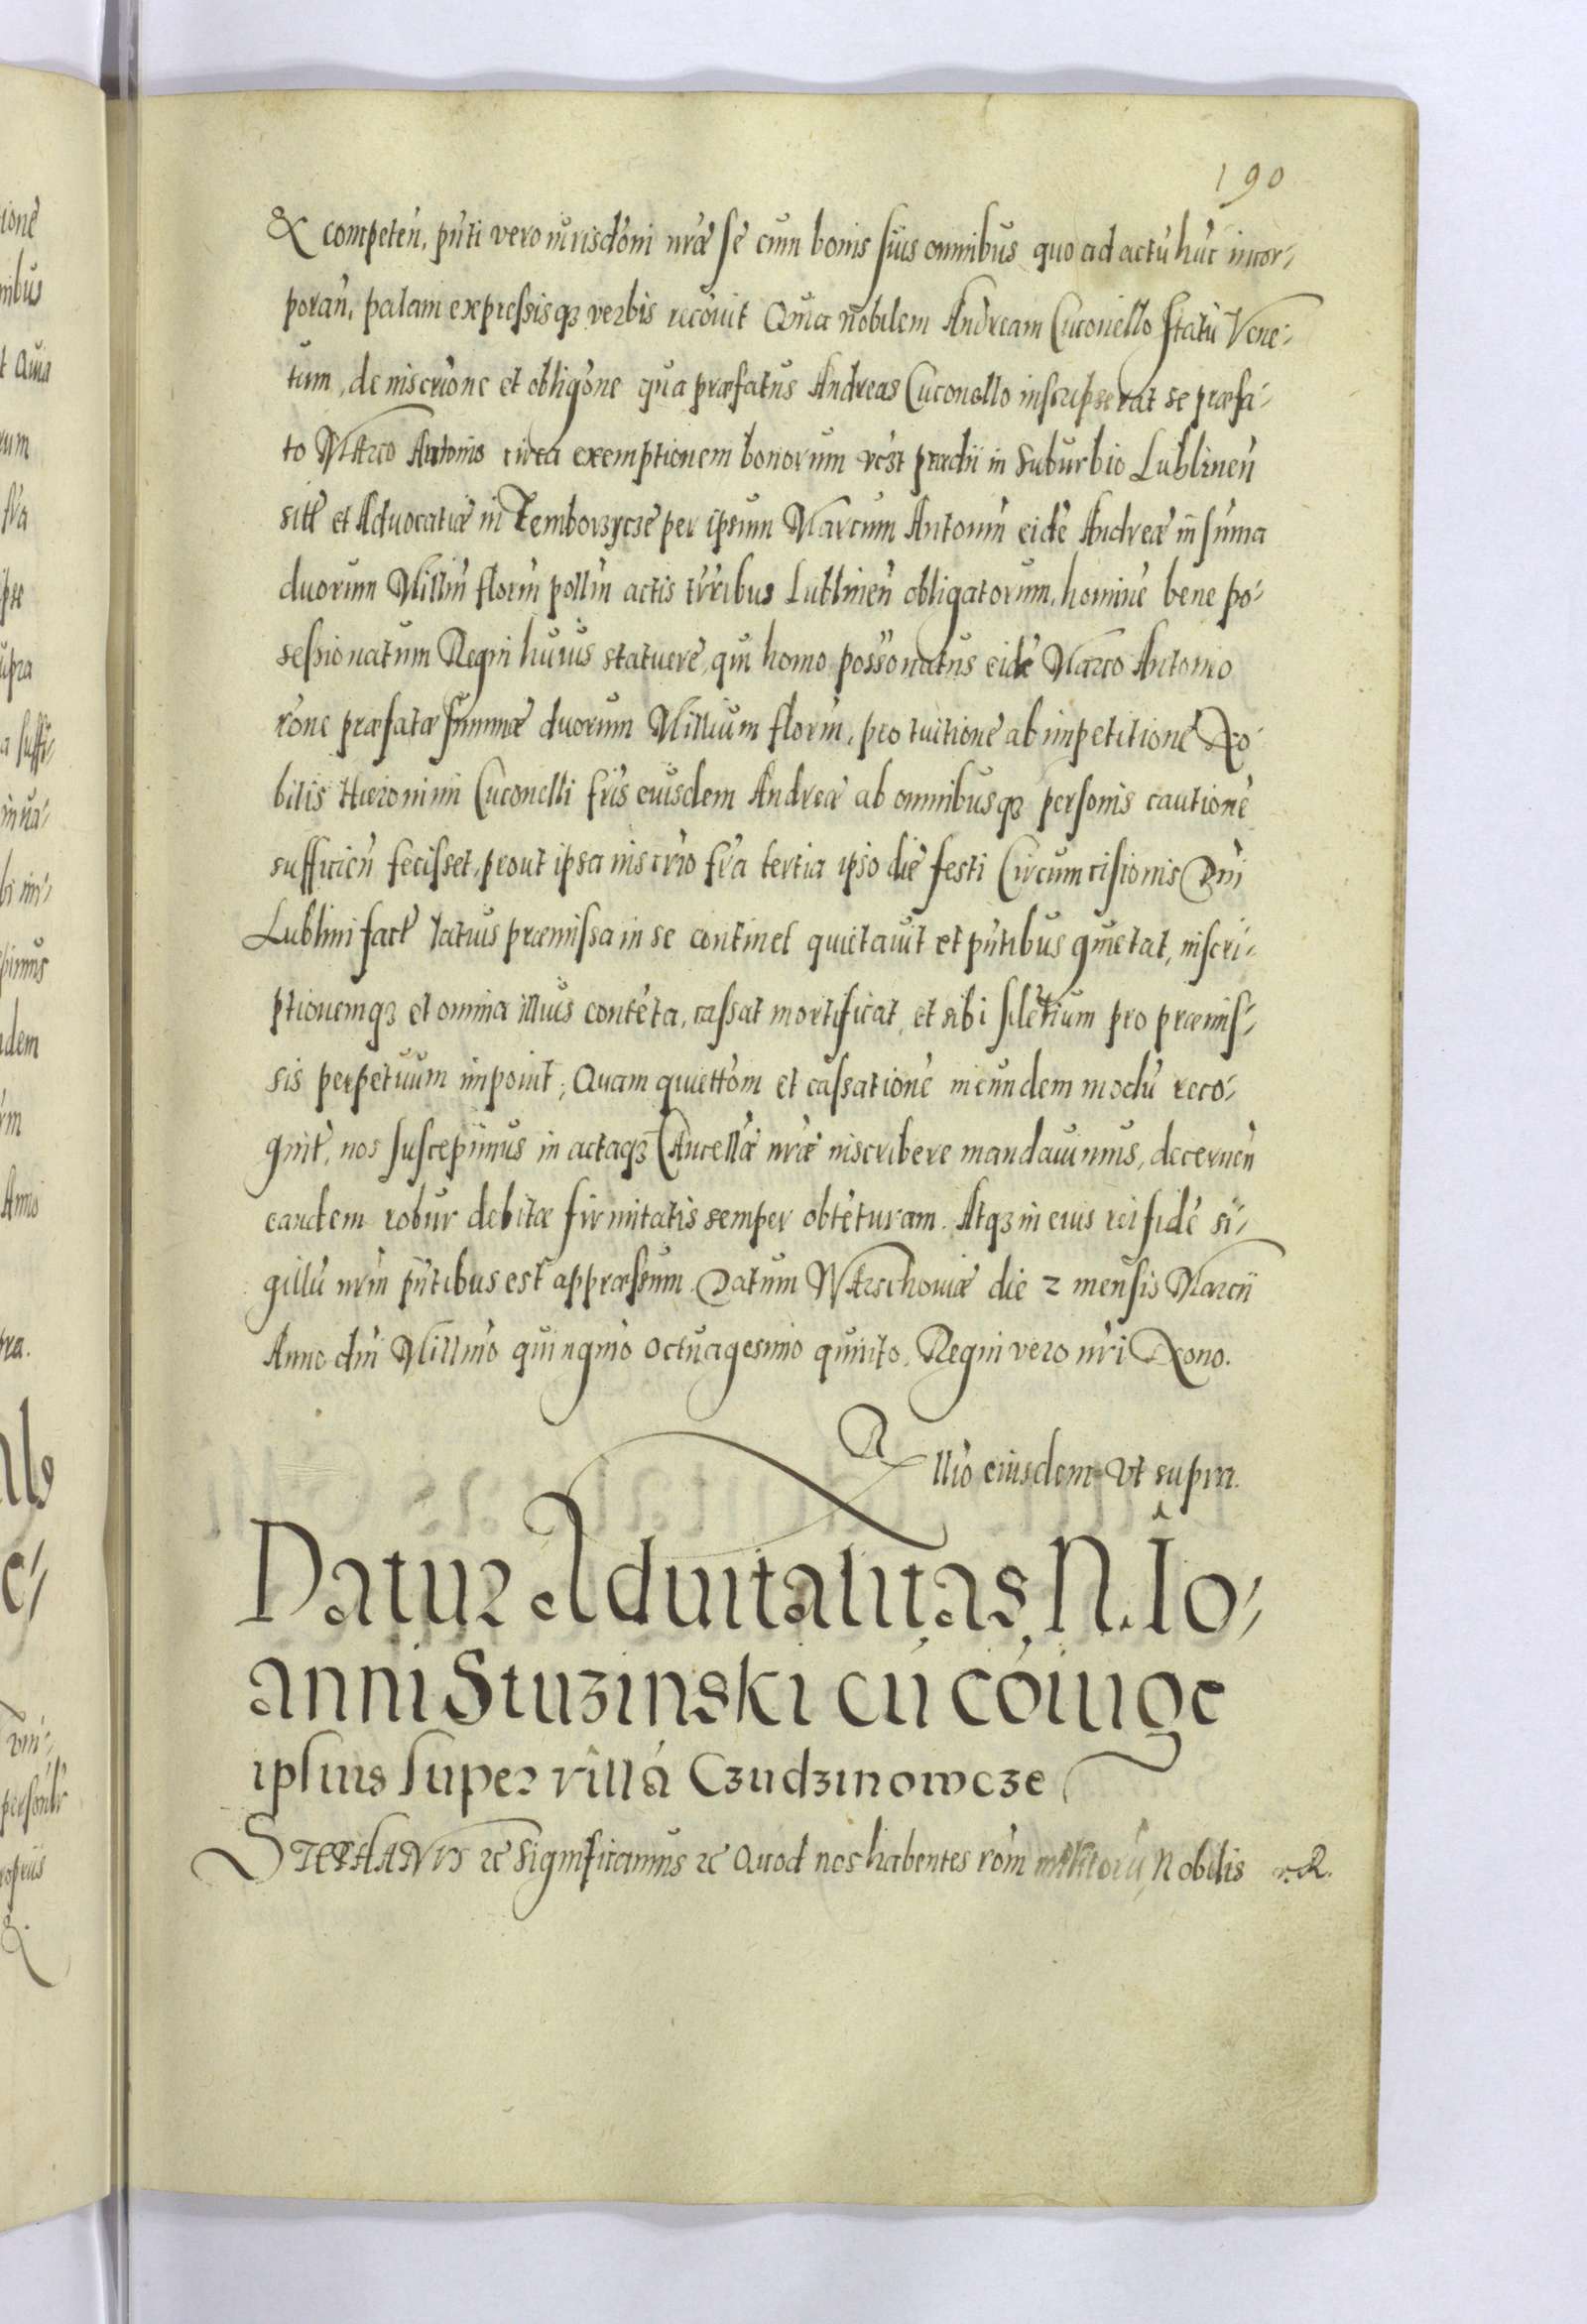 190
& competen̄, pn̄ti vero iurisdc̄oni nr̄æ se cum bonis suis omnibus quo ad actū hūc incor-
poran̄, palam expressisqꝫ verbis recōuit Quia nobilem Andream Cuconello Statū Vene-
tum, de inscrīone et obligōne qua præfatus Andreas Cuconello inscripserat se præfa-
to Marco Antonio circa exemptionem bonorum vēst prædii in Suburbio Lublinen̄
sitē et Advocatiæ in Zemborzycze per ipsum Marcum Antoniū eidē Andreæ in sūma
duorum Milliū florin̄ pollin̄ actis tr̄ribus Lublinen̄ obligatorum, hominē bene pos-
sessionatum Regni huius statuere, qui homo poss̄onatus eidē Marco Antonio
rōne præfatæ summæ duorum Millium florin̄, pro tuitione ab impetitione No-
bilis Hieronimi Cuconelli fr̄is eiusdem Andreæ ab omnibusqꝫ personis cautionē
sufficien̄ fecisset, prout ipsa inscrīo fr̄a tertia ipso die festi Circumcisionis Dn̄i
Lublini factē latius præmissa in se continet quietauit et pn̄tibus quietat, inscri-
ptionemqꝫ et omnia illius contēta, cassat mortificat, et sibi silētium pro præmis-
sis perpetuum imponit, Quam quiettōm et cassationē in eundem modū reco-
gnitē, nos suscepimus in actaqꝫ Cancellæ nr̄æ inscribere mandauimus, decernen̄
eandem robur debitæ firmitatis semper obtēturam. Atqꝫ in eius rei fidē si-
gillū nrm̄ pn̄tibus est appræssum. Datum Warschouiæ die 2 mensis Marcii
Anno dn̄i Millmō quingmō octuagesimo quinto, Regni vero nr̄i Nono.
Rllīo eiusdem Vt supra.
Datur Aduitalitas N. Io-
anni Stuzinski cū cōiuge
ipsius super villā Czudzinowcze
STEPHANVS ꝛc Significamus ꝛc Quod nos habentes rōm meritorū, Nobilis